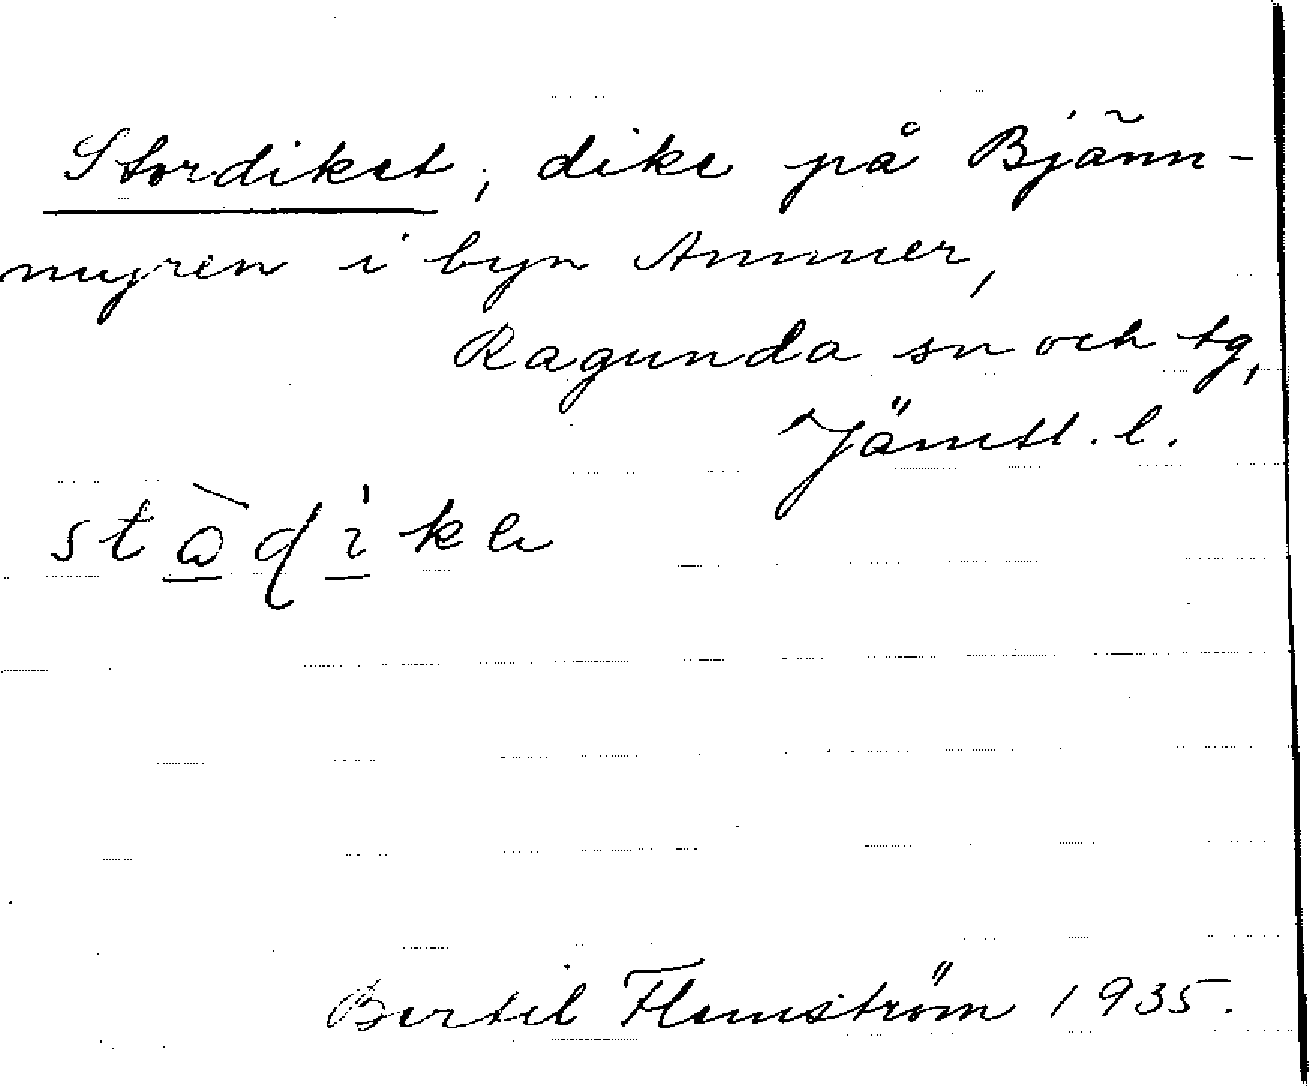 Stordiket, dike på Bjänn-
myren i byn Ammer,
Ragunda sn och tg,
Jämtl. l.
Bertil Flemström 1935.